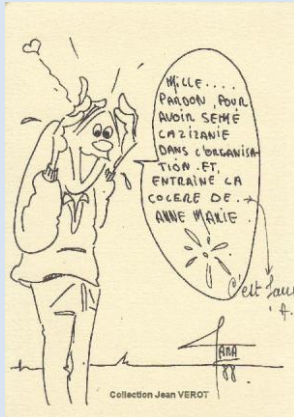 MILLE....
PARDON, POUR
AVOIR SEMÉ
LA ZIZANIE
DANS L'ORGANISA-
TION. ET,
ENTRAINÉ LA
COLERE DE..
ANNE MARIE.
C'est faux
A.
JANA
88
Collection Jean VEROT